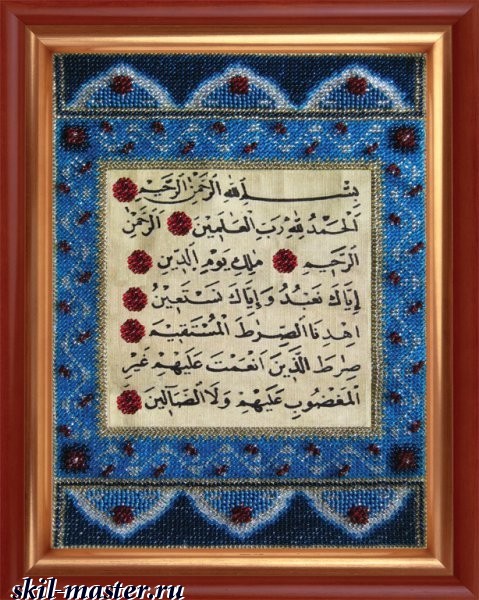 بِسْمِ اللهِ الرَّحْمٰنِ الرَّحِيْمِ
اَلْحَمْدُ لِلّٰهِ رَبِّ الْعٰلَمِيْنَ الرَّحْمٰنِ
الرَّحِيْمِ مٰلِكِ يَوْمِ الدِّيْنِ
اِيَّاكَ نَعْبُدُ وَاِيَّاكَ نَسْتَعِيْنُ
اِهْدِنَا الصِّرَاطَ الْمُسْتَقِيْمَ
صِرَاطَ الَّذِيْنَ اَنْعَمْتَ عَلَيْهِمْ غَيْرِ
الْمَغْضُوْبِ عَلَيْهِمْ وَلَا الضَّآلِّيْنَ
skil-master.ru